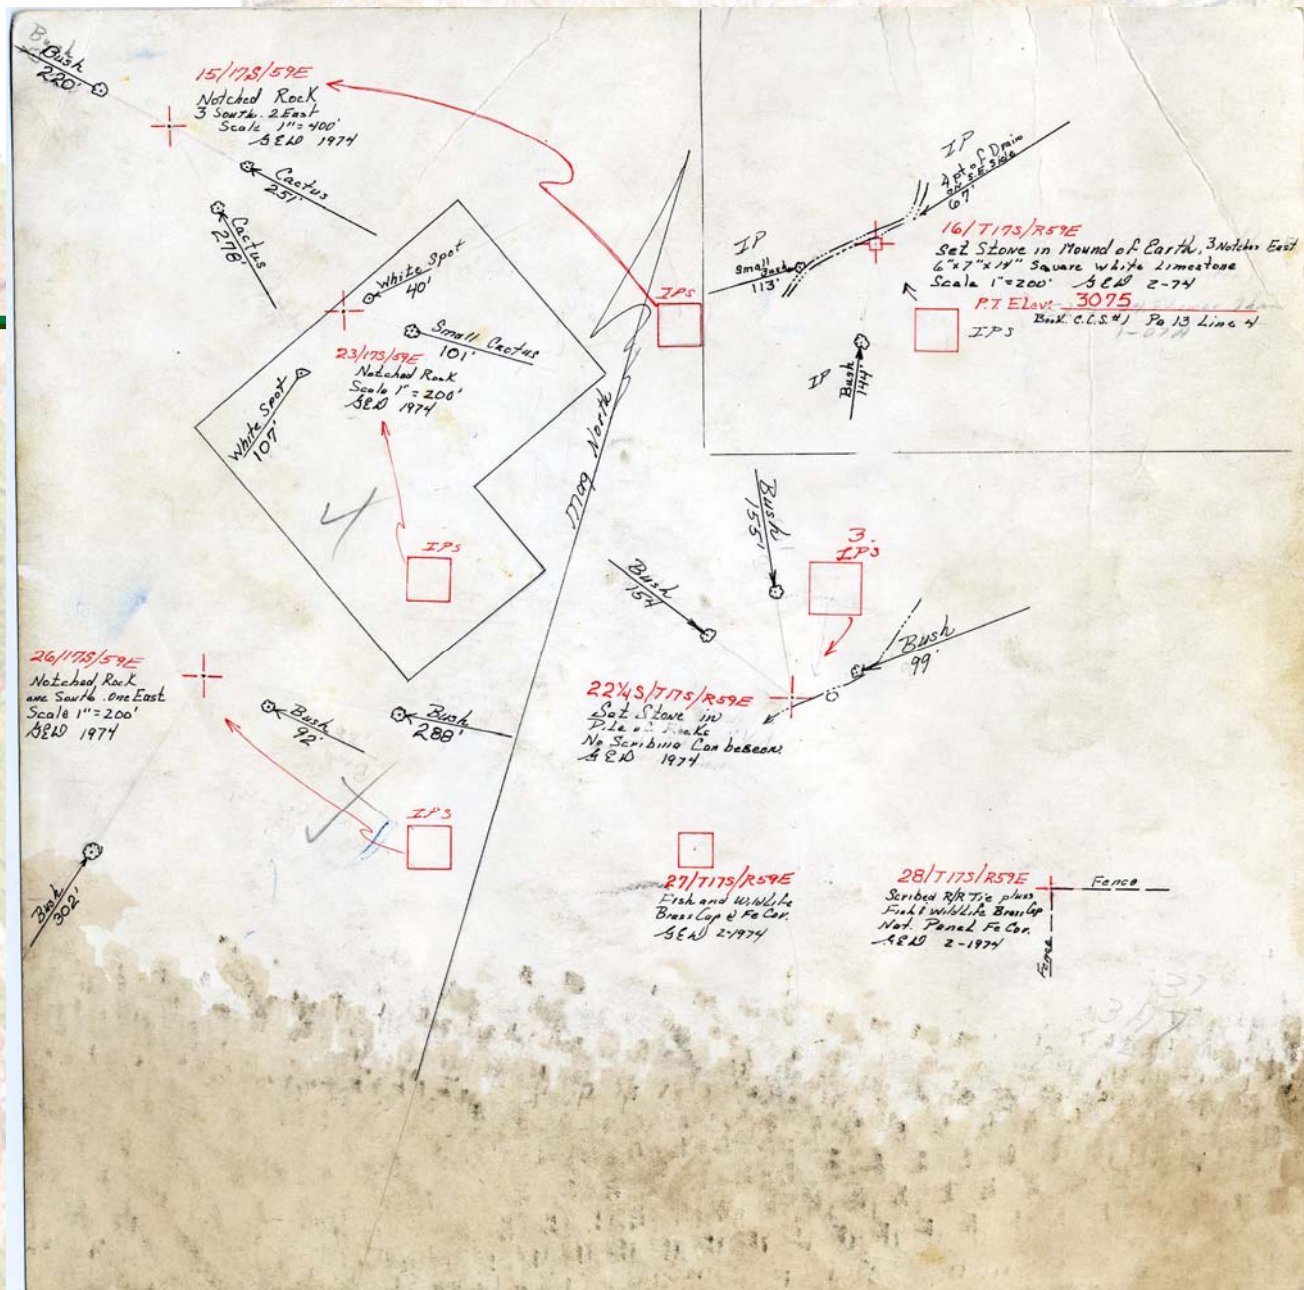 Bush
220'
15/17S/59E
Notched Rock
3 South. 2 East
Scale 1"=400'
GEW 1974
Cactus
251'
Cactus
278'
White Spot
40'
Small Cactus
101'
23/17S/59E
Notched Rock
Scale 1"=200'
GEW 1974
White Spot
107'
IPS
IPS
Mag North
IP
4 pt of Drain
on S.E. Side
67'
IP
Small Bush
113'
16/T17S/R59E
Set Stone in Mound of Earth, 3 Notches East
6"x7"x14" Square White Limestone
Scale 1"=200' GEW 2-74
P.I. Elev: 3075
Book C.C.S. #1 Pg 13 Line 4
IPS
IP
Bush
144'
Bush
155'
Bush
154
3.
IPS
Bush
99'
22 1/4 S/T17S/R59E
Set Stone in
Pile of Rocks
No Scribing Can be seen.
GEW 1974
26/17S/59E
Notched Rock
one South. One East
Scale 1"=200'
GEW 1974
Bush
92'
Bush
288'
IPS
Bush
302'
27/T17S/R59E
Fish and Wildlife
Brass Cap @ Fe Cor.
GEW 2-1974
28/T17S/R59E
Scribed R/R Tie plus
Fish & Wildlife Brass Cap
Not. Paneld Fe Cor.
GEW 2-1974
Fence
Fence